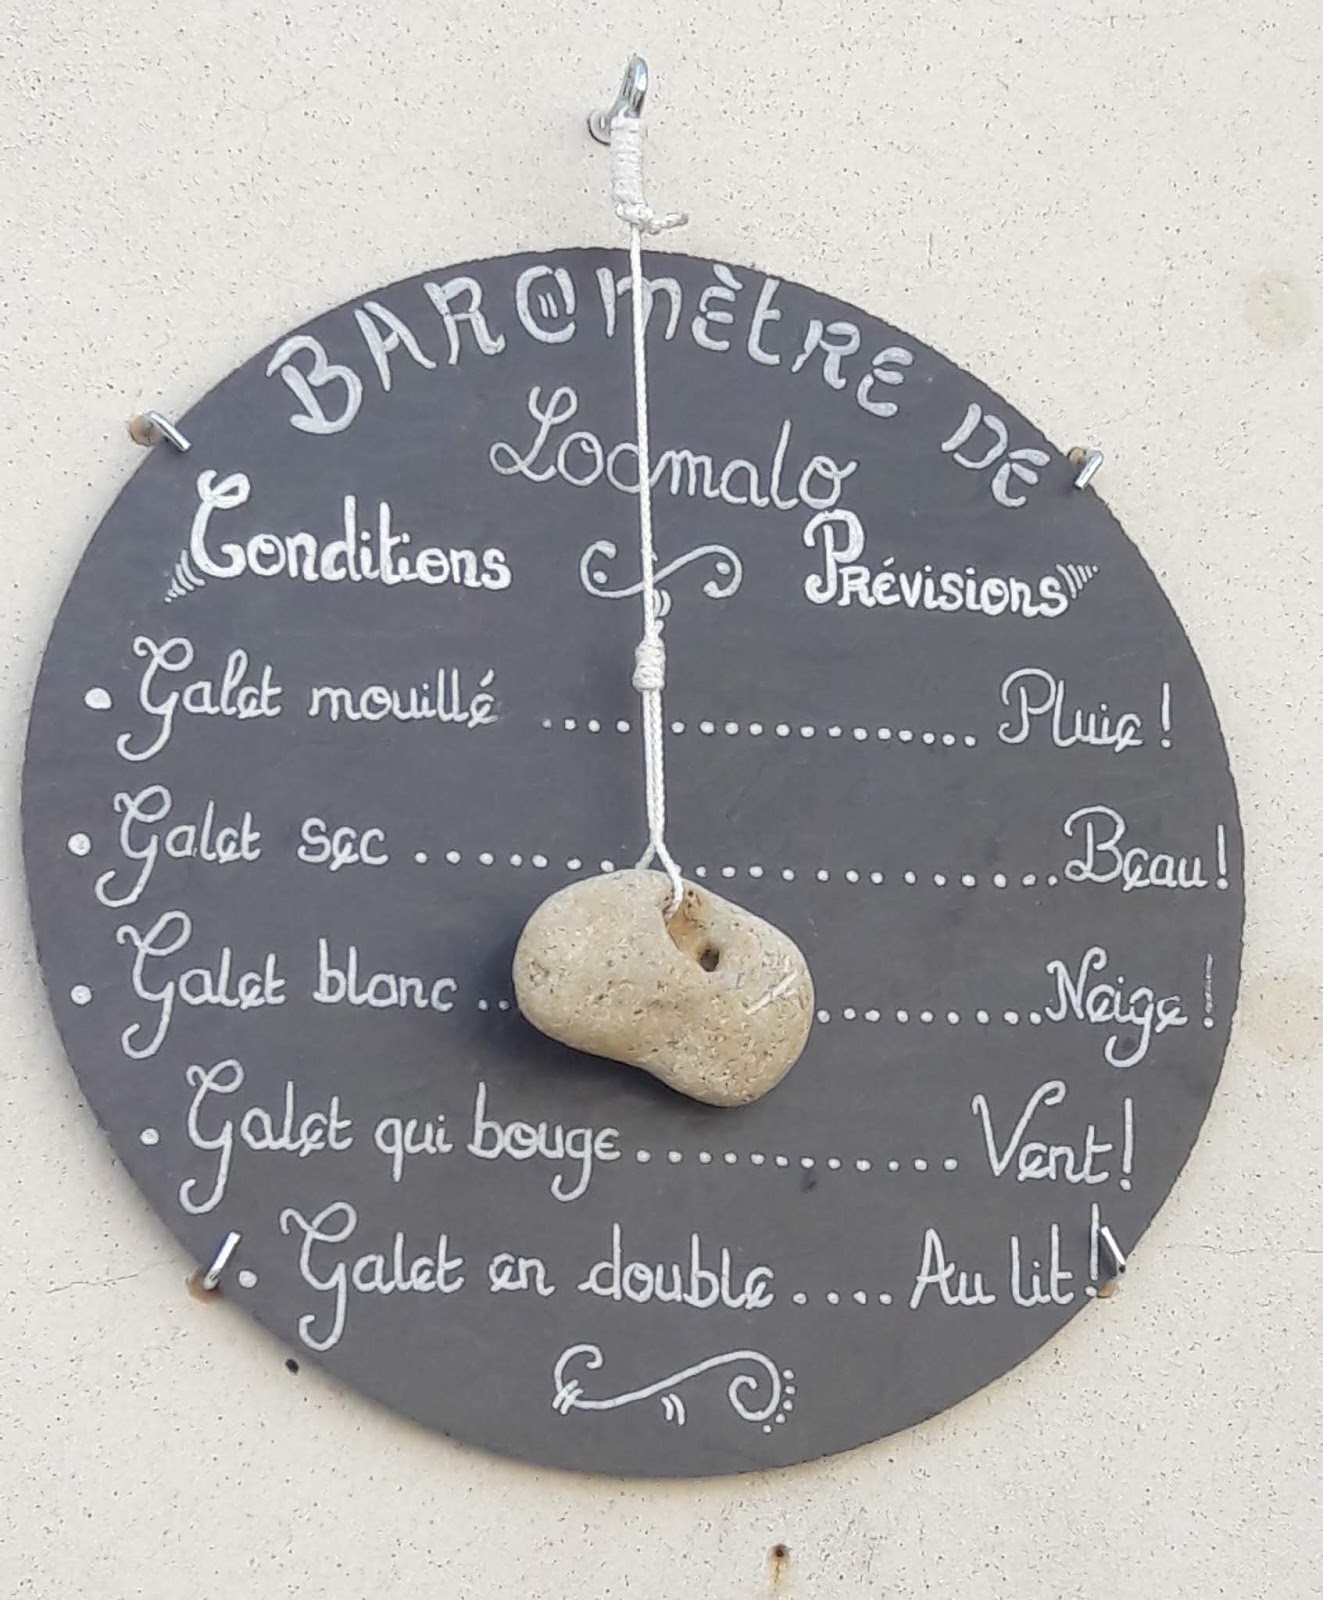 BAROMÈTRE DE
Locmalo
Conditions Prévisions
• Galet mouillé ................ Pluie !
• Galet sec ........................ Beau !
• Galet blanc .. .......... Neige !
• Galet qui bouge ............. Vent !
• Galet en double .... Au lit !